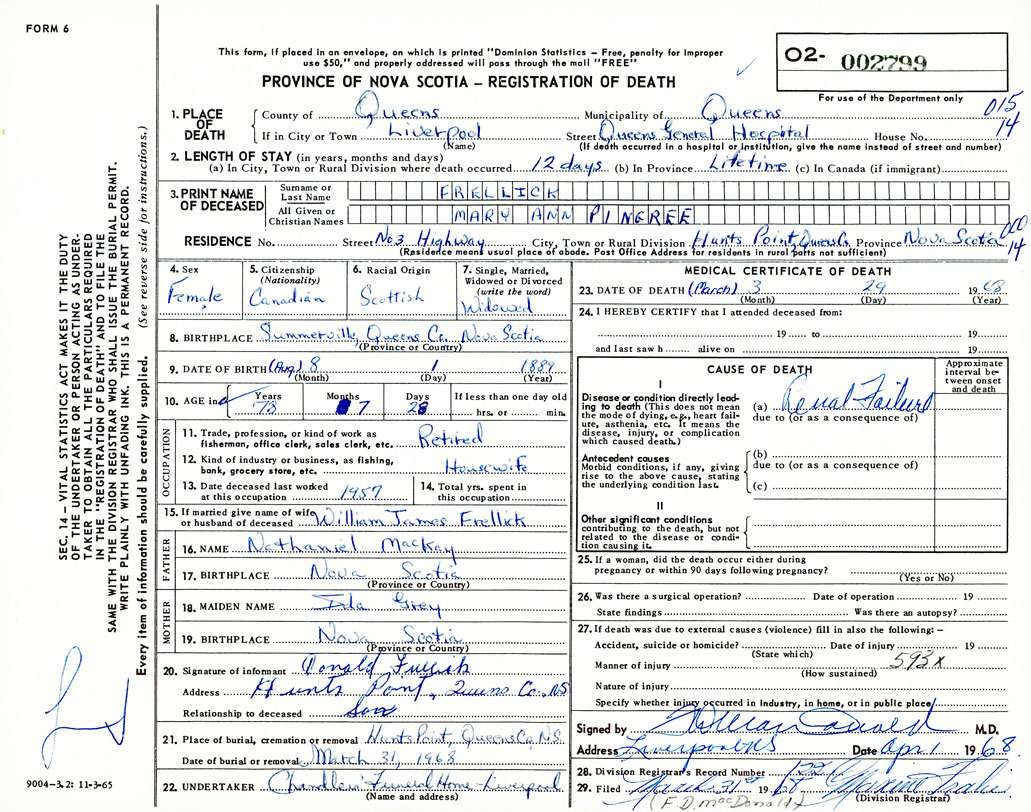 FORM 6
This form, if placed in an envelope, on which is printed "Dominion Statistics – Free, penalty for improper
use $50," and properly addressed will pass through the mail "FREE"
PROVINCE OF NOVA SCOTIA – REGISTRATION OF DEATH
02- 002799
For use of the Department only
015
14
1. PLACE OF DEATH
County of Queens Municipality of Queens
If in City or Town Liverpool Street Queens General Hospital House No.
(Name) (If death occurred in a hospital or institution, give the name instead of street and number)
2. LENGTH OF STAY (in years, months and days)
(a) In City, Town or Rural Division where death occurred 12 days (b) In Province Lifetime (c) In Canada (if immigrant)
3. PRINT NAME OF DECEASED
Surname or Last Name FRELLICK
All Given or Christian Names MARY ANN PINGREE
000
14
RESIDENCE No. Street No 3 Highway City, Town or Rural Division Hunts Point, Queens Co. Province Nova Scotia
(Residence means usual place of abode. Post Office Address for residents in rural parts not sufficient)
4. Sex Female
5. Citizenship (Nationality) Canadian
6. Racial Origin Scottish
7. Single, Married, Widowed or Divorced (write the word) Widowed
8. BIRTHPLACE Summerville, Queens Co. Nova Scotia
(Province or Country)
9. DATE OF BIRTH (Aug) 8 1 1889
(Month) (Day) (Year)
10. AGE in Years 78 Months 7 Days 28 If less than one day old
hrs. or min.
OCCUPATION
11. Trade, profession, or kind of work as
fisherman, office clerk, sales clerk, etc. Retired
12. Kind of industry or business, as fishing,
bank, grocery store, etc. Housewife
13. Date deceased last worked
at this occupation 1957
14. Total yrs. spent in
this occupation
15. If married give name of wife
or husband of deceased William James Frellick
FATHER
16. NAME Nathaniel MacKay
17. BIRTHPLACE Nova Scotia
(Province or Country)
MOTHER
18. MAIDEN NAME Ida Grey
19. BIRTHPLACE Nova Scotia
(Province or Country)
20. Signature of informant Donald Frellick
Address Hunts Point, Queens Co., NS
Relationship to deceased Son
21. Place of burial, cremation or removal Hunts Point, Queens Co, N.S.
Date of burial or removal March 31, 1968
22. UNDERTAKER Chandlers Funeral Home – Liverpool
(Name and address)
MEDICAL CERTIFICATE OF DEATH
23. DATE OF DEATH (March) 3 29 1968
(Month) (Day) (Year)
24. I HEREBY CERTIFY that I attended deceased from:
19 to 19
and last saw h alive on 19
CAUSE OF DEATH
Approximate interval between onset and death
I
Disease or condition directly lead-
ing to death (This does not
mean the mode of dying, e.g., heart fail-
ure, asthenia, etc. It means the
disease, injury, or complication
which caused death.)
(a) Renal Failure
due to (or as a consequence of)
Antecedent causes
Morbid conditions, if any, giving
rise to the above cause, stating
the underlying condition last.
(b)
due to (or as a consequence of)
(c)
II
Other significant conditions
contributing to the death, but not
related to the disease or condi-
tion causing it.
25. If a woman, did the death occur either during
pregnancy or within 90 days following pregnancy?
(Yes or No)
26. Was there a surgical operation? Date of operation 19
State findings Was there an autopsy?
27. If death was due to external causes (violence) fill in also the following: –
Accident, suicide or homicide? Date of injury 19
(State which)
593X
Manner of injury
(How sustained)
Nature of injury
Specify whether injury occurred in Industry, in home, or in public place
Signed by M.D.
Address Liverpool NS Date Apr 1 1968
28. Division Registrar's Record Number
29. Filed March 31st 1968
(F.D. MacDonald) (Division Registrar)
SEC. 14 – VITAL STATISTICS ACT MAKES IT THE DUTY
OF THE UNDERTAKER OR PERSON ACTING AS UNDER-
TAKER TO OBTAIN ALL THE PARTICULARS REQUIRED
IN THE "REGISTRATION OF DEATH" AND TO FILE THE
SAME WITH THE DIVISION REGISTRAR WHO SHALL ISSUE THE BURIAL PERMIT.
WRITE PLAINLY WITH UNFADING INK. THIS IS A PERMANENT RECORD.
Every item of information should be carefully supplied. (See reverse side for instructions.)
9004-3.2: 11-3-65